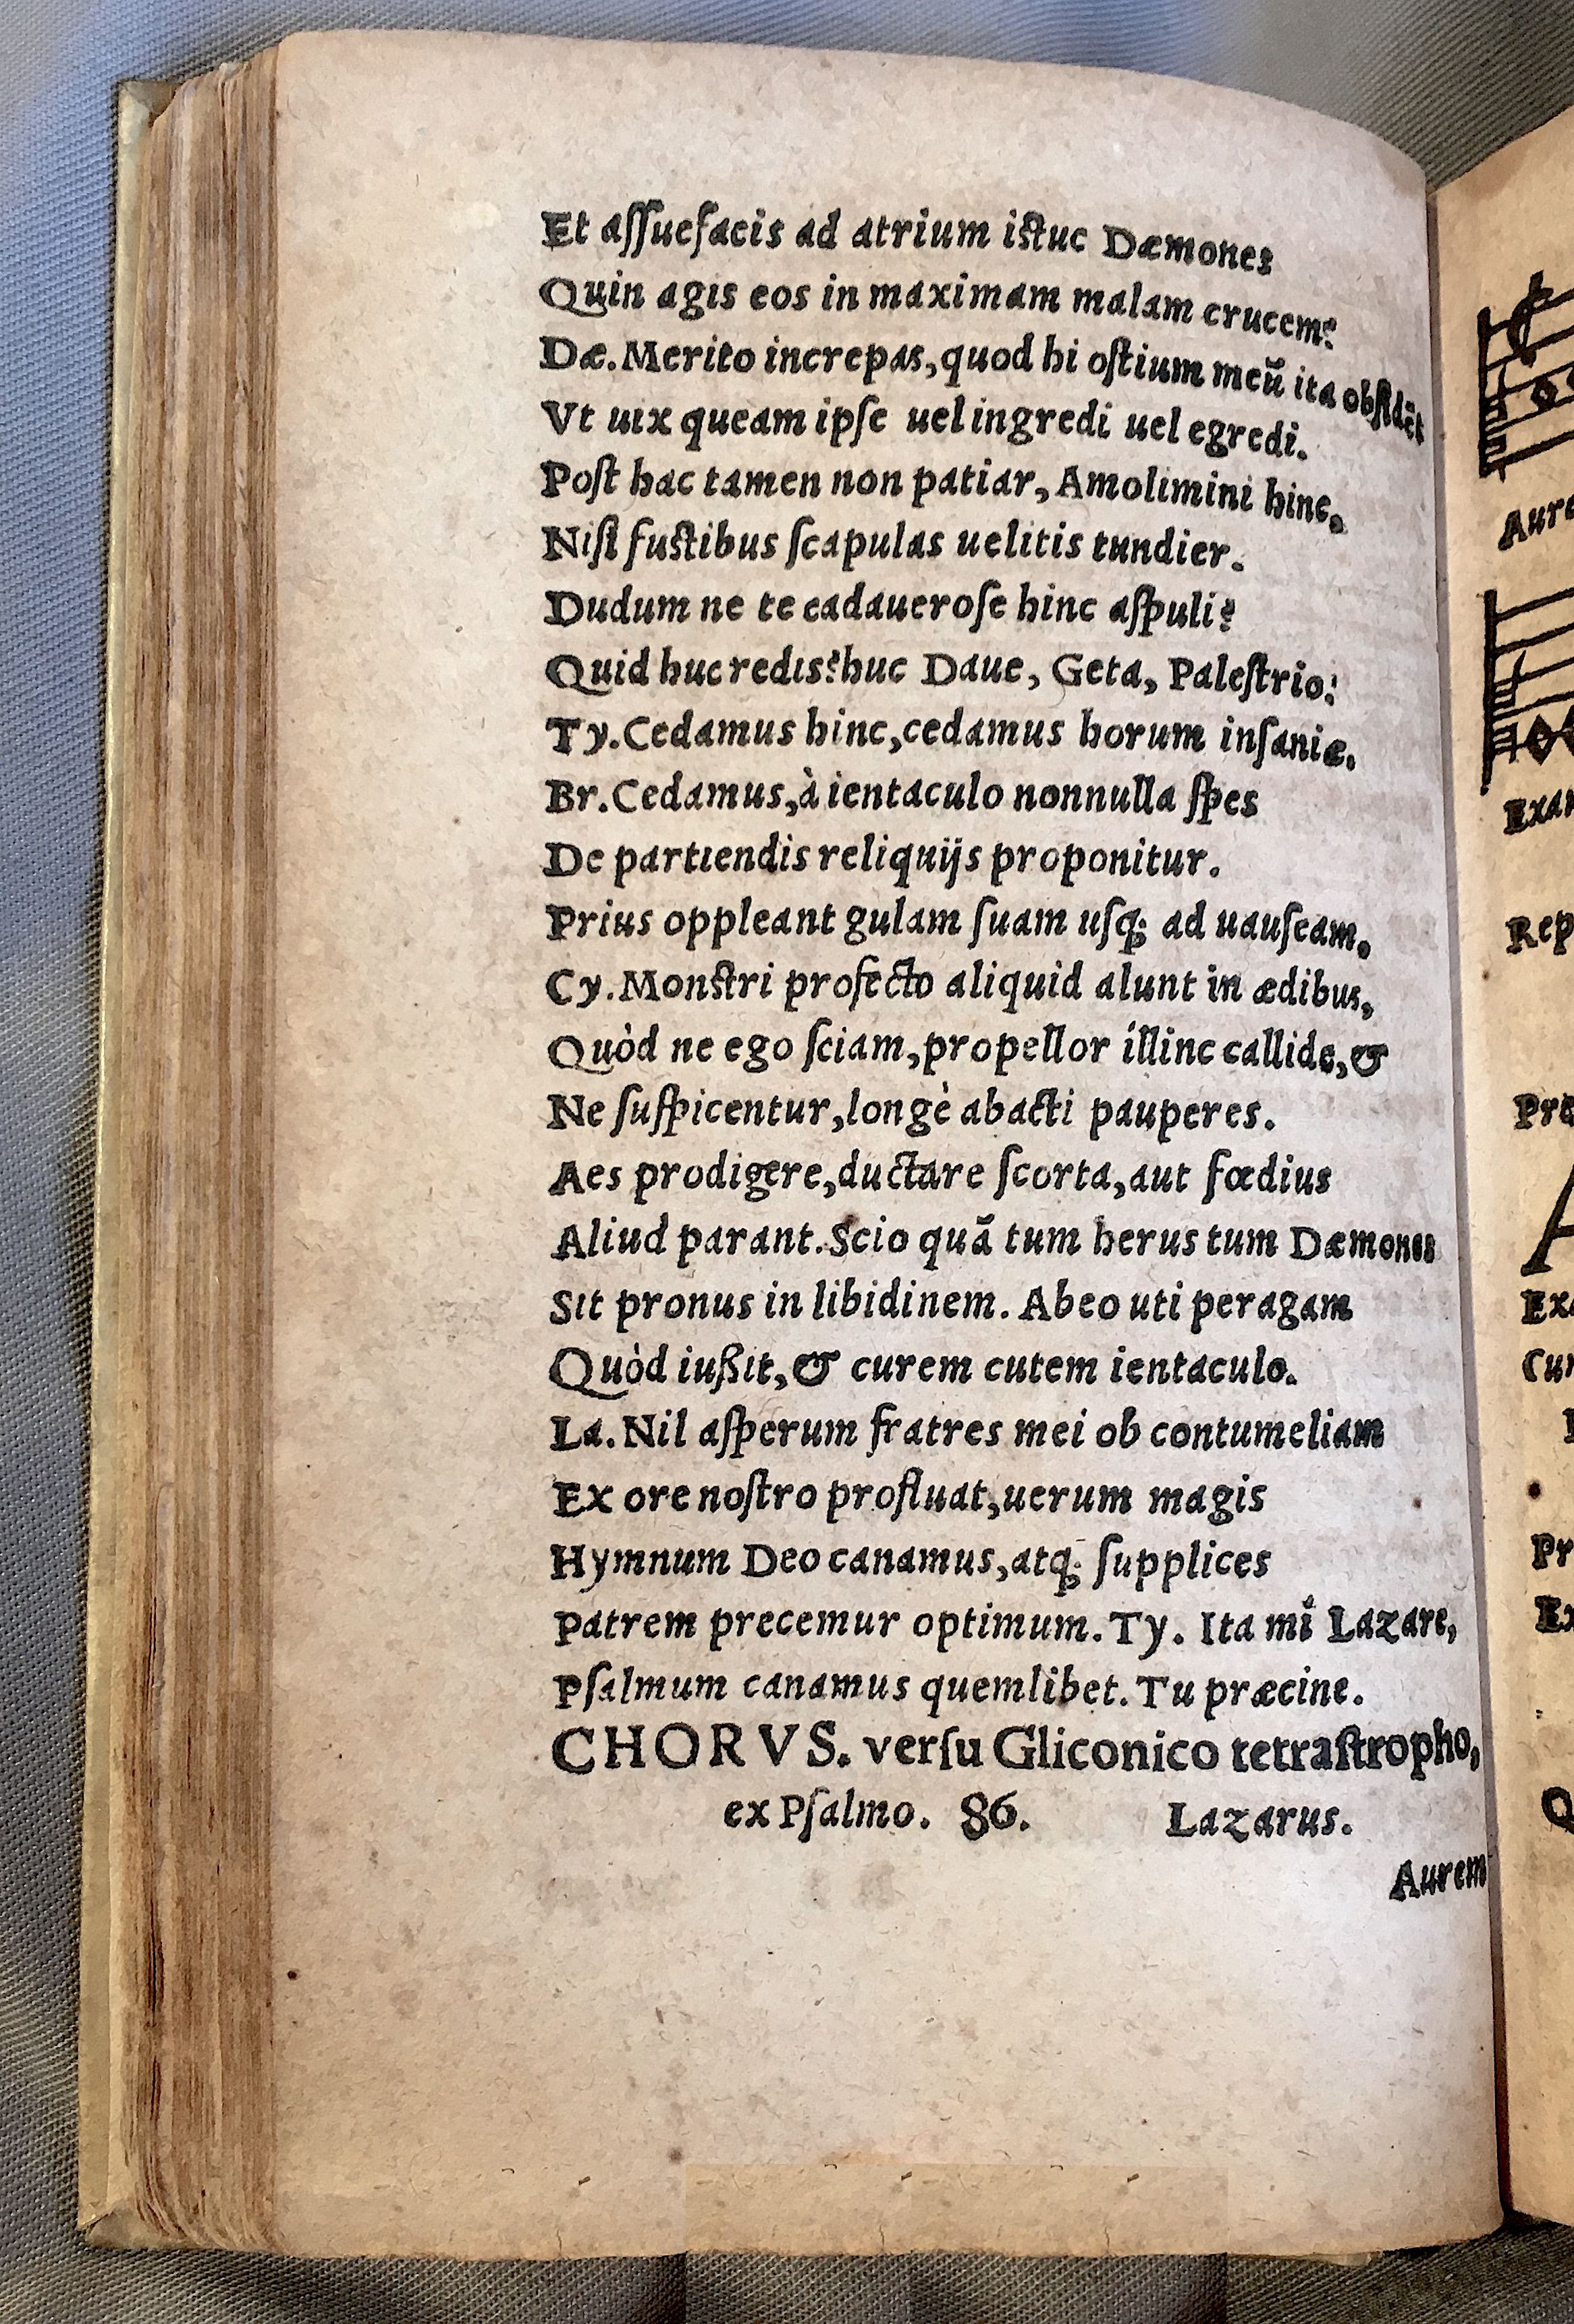 Et aſſuefacis ad atrium iſtuc Dæmones
Quin agis eos in maximam malam crucem?
Dæ. Merito increpas, quod hi oſtium meũ ita obſidẽt
Vt uix queam ipſe uel ingredi uel egredi.
Poſt hac tamen non patiar, Amolimini hinc,
Niſi fuſtibus ſcapulas uelitis tundier.
Dudum ne te cadaueroſe hinc aſpuli?
Quid huc redis? huc Daue, Geta, Paleſtrio:
Ty. Cedamus hinc, cedamus horum inſaniæ.
Br. Cedamus, à ientaculo nonnulla ſpes
De partiendis reliquijs proponitur.
Prius oppleant gulam ſuam uſq; ad uauſeam,
Cy. Monſtri profecto aliquid alunt in ædibus,
Quòd ne ego ſciam, propellor illinc callide, &
Ne ſuſpicentur, longè abacti pauperes.
Aes prodigere, ductare ſcorta, aut fœdius
Aliud parant. Scio quã tum herus tum Dæmones
Sit pronus in libidinem. Abeo uti peragam
Quòd iußit, & curem cutem ientaculo.
La. Nil aſperum fratres mei ob contumeliam
Ex ore noſtro profluat, uerum magis
Hymnum Deo canamus, atq; ſupplices
Patrem precemur optimum. Ty. Ita mi Lazare,
Pſalmum canamus quemlibet. Tu præcine.
CHORVS. verſu Gliconico tetraſtropho,
ex Pſalmo. 86. Lazarus.
Aurem